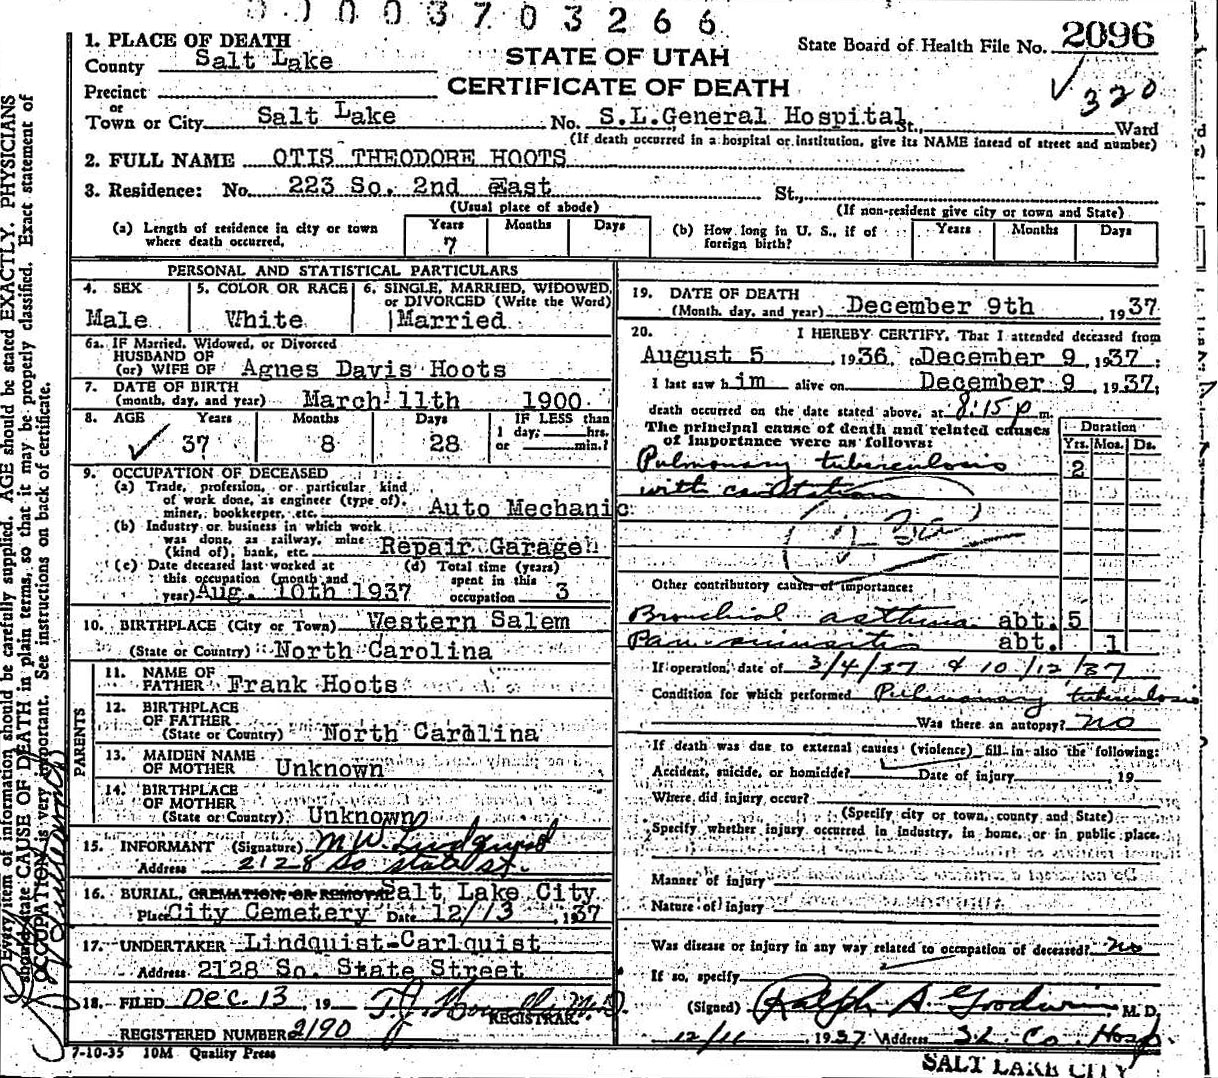 0 0 0 0 3 7 0 3 2 6 6
STATE OF UTAH
CERTIFICATE OF DEATH
State Board of Health File No. 2096
320
1. PLACE OF DEATH
County Salt Lake
Precinct
or
Town or City Salt Lake No. S.L.General Hospital St., Ward
(If death occurred in a hospital or institution, give its NAME instead of street and number)
2. FULL NAME OTIS THEODORE HOOTS
3. Residence: No. 223 So. 2nd East St.,
(Usual place of abode) (If non-resident give city or town and State)
(a) Length of residence in city or town where death occurred. Years 7 Months Days
(b) How long in U. S., if of foreign birth? Years Months Days
PERSONAL AND STATISTICAL PARTICULARS
4. SEX Male
5. COLOR OR RACE White
6. SINGLE, MARRIED, WIDOWED, or DIVORCED (Write the Word) Married
6a. IF Married, Widowed, or Divorced
HUSBAND OF
(or) WIFE OF Agnes Davis Hoots
7. DATE OF BIRTH
(month, day, and year) March 11th 1900
8. AGE Years 37 Months 8 Days 28 IF LESS than 1 day, hrs. or min.?
9. OCCUPATION OF DECEASED
(a) Trade, profession, or particular kind
of work done, as engineer (type of),
miner, bookkeeper, etc. Auto Mechanic
(b) Industry or business in which work
was done, as railway, mine
(kind of), bank, etc. Repair Garage
(c) Date deceased last worked at
this occupation (month and
year) Aug. 10th 1937
(d) Total time (years)
spent in this
occupation 3
10. BIRTHPLACE (City or Town) Western Salem
(State or Country) North Carolina
PARENTS
11. NAME OF
FATHER Frank Hoots
12. BIRTHPLACE
OF FATHER
(State or Country) North Carolina
13. MAIDEN NAME
OF MOTHER Unknown
14. BIRTHPLACE
OF MOTHER
(State or Country) Unknown
15. INFORMANT (Signature) M.W. Lindquist
Address 2128 So State St.
16. BURIAL, CREMATION, OR REMOVAL Salt Lake City
Place City Cemetery Date 12/13 1937
17. UNDERTAKER Lindquist-Carlquist
Address 2128 So. State Street
18. FILED Dec. 13, 19
REGISTRAR.
REGISTERED NUMBER 2190
7-10-35 10M Quality Press
19. DATE OF DEATH
(Month, day, and year) December 9th, 1937
20. I HEREBY CERTIFY, That I attended deceased from
August 5 1936, to December 9, 1937;
I last saw him alive on December 9, 1937;
death occurred on the date stated above, at 8:15 p m.
The principal cause of death and related causes
of importance were as follows:
Duration
Yrs. Mos. Ds.
Pulmonary tuberculosis 2
with cavitation
Other contributory causes of importance:
Bronchial asthma abt. 5
Pan sinusitis abt. 1
If operation, date of 3/4/37 & 10/12/37
Condition for which performed Pulmonary tuberculosis
Was there an autopsy? no
If death was due to external causes (violence) fill in also the following:
Accident, suicide, or homicide? Date of injury 19
Where did injury occur?
(Specify city or town, county and State)
Specify whether injury occurred in industry, in home, or in public place.
Manner of injury
Nature of injury
Was disease or injury in any way related to occupation of deceased? no
If so, specify
(Signed) Ralph A. Goodwin, M. D.
12/11 1937 Address S.L. Co. Hosp.
SALT LAKE CITY
Every item of information should be carefully supplied. AGE should be stated EXACTLY. PHYSICIANS
should state CAUSE OF DEATH in plain terms, so that it may be properly classified. Exact statement of
OCCUPATION is very important. See instructions on back of certificate.